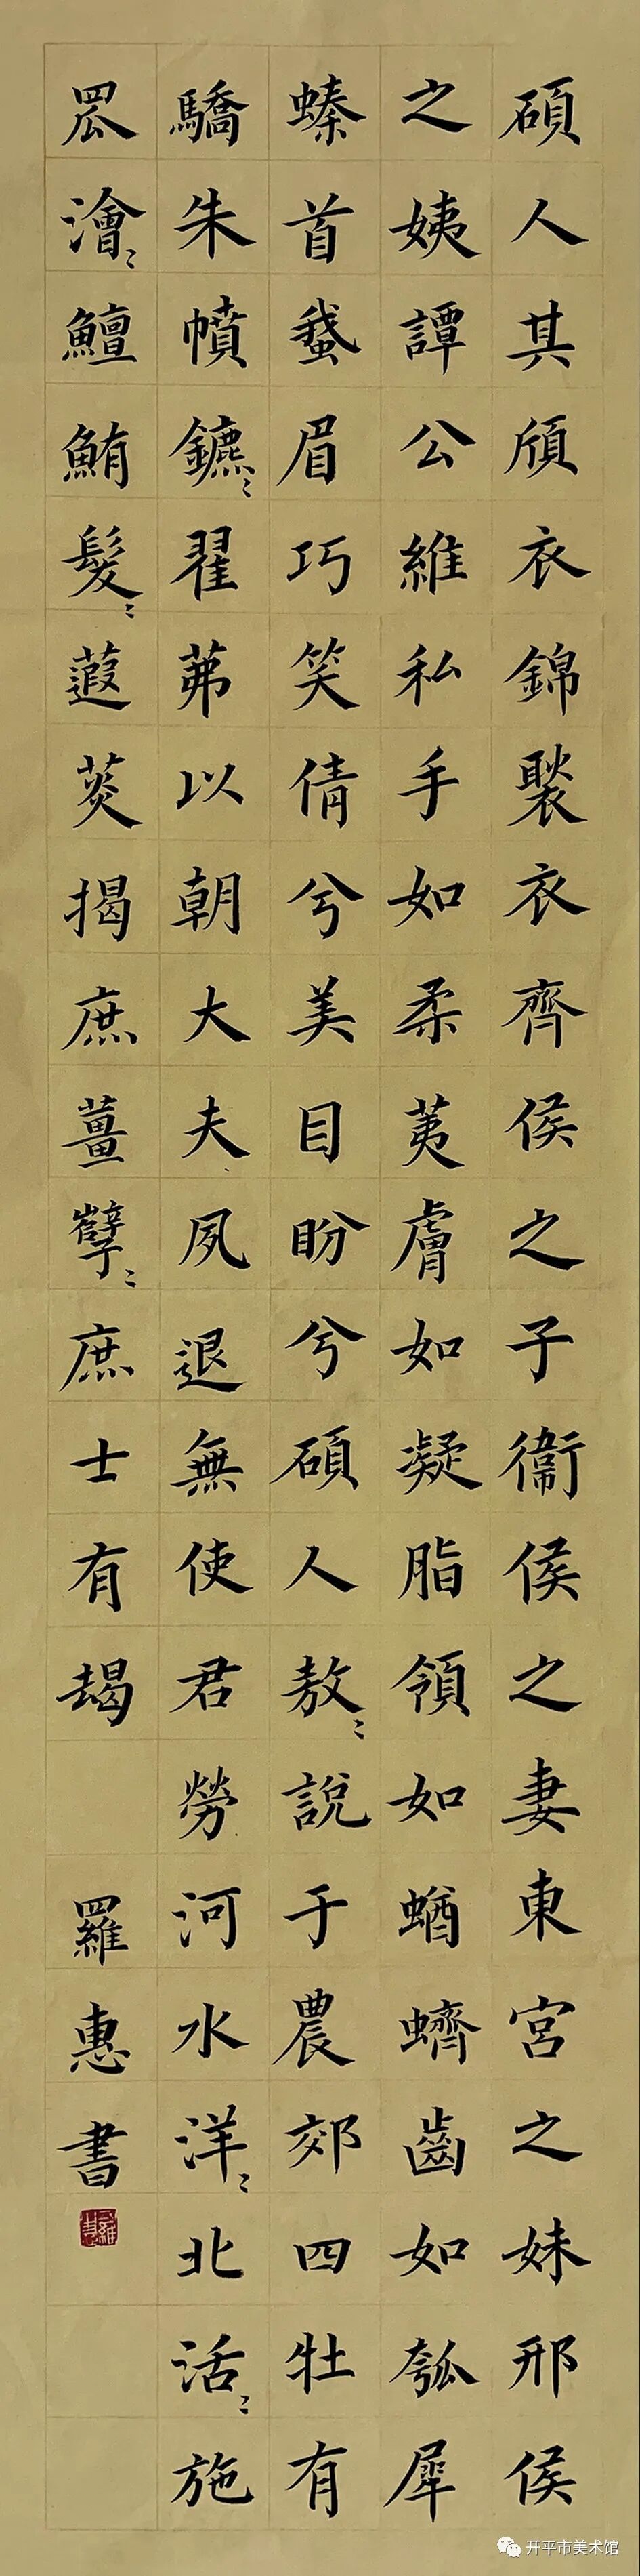 碩人其頎衣錦褧衣齊侯之子衞侯之妻東宮之妹邢侯
之姨譚公維私手如柔荑膚如凝脂領如蝤蠐齒如瓠犀
螓首蛾眉巧笑倩兮美目盼兮碩人敖〻說于農郊四牡有
驕朱幩鑣〻翟茀以朝大夫夙退無使君勞河水洋〻北活〻施
罛濊〻鱣鮪髮〻葭菼揭庶薑孽〻庶士有朅
羅惠書
开平市美术馆